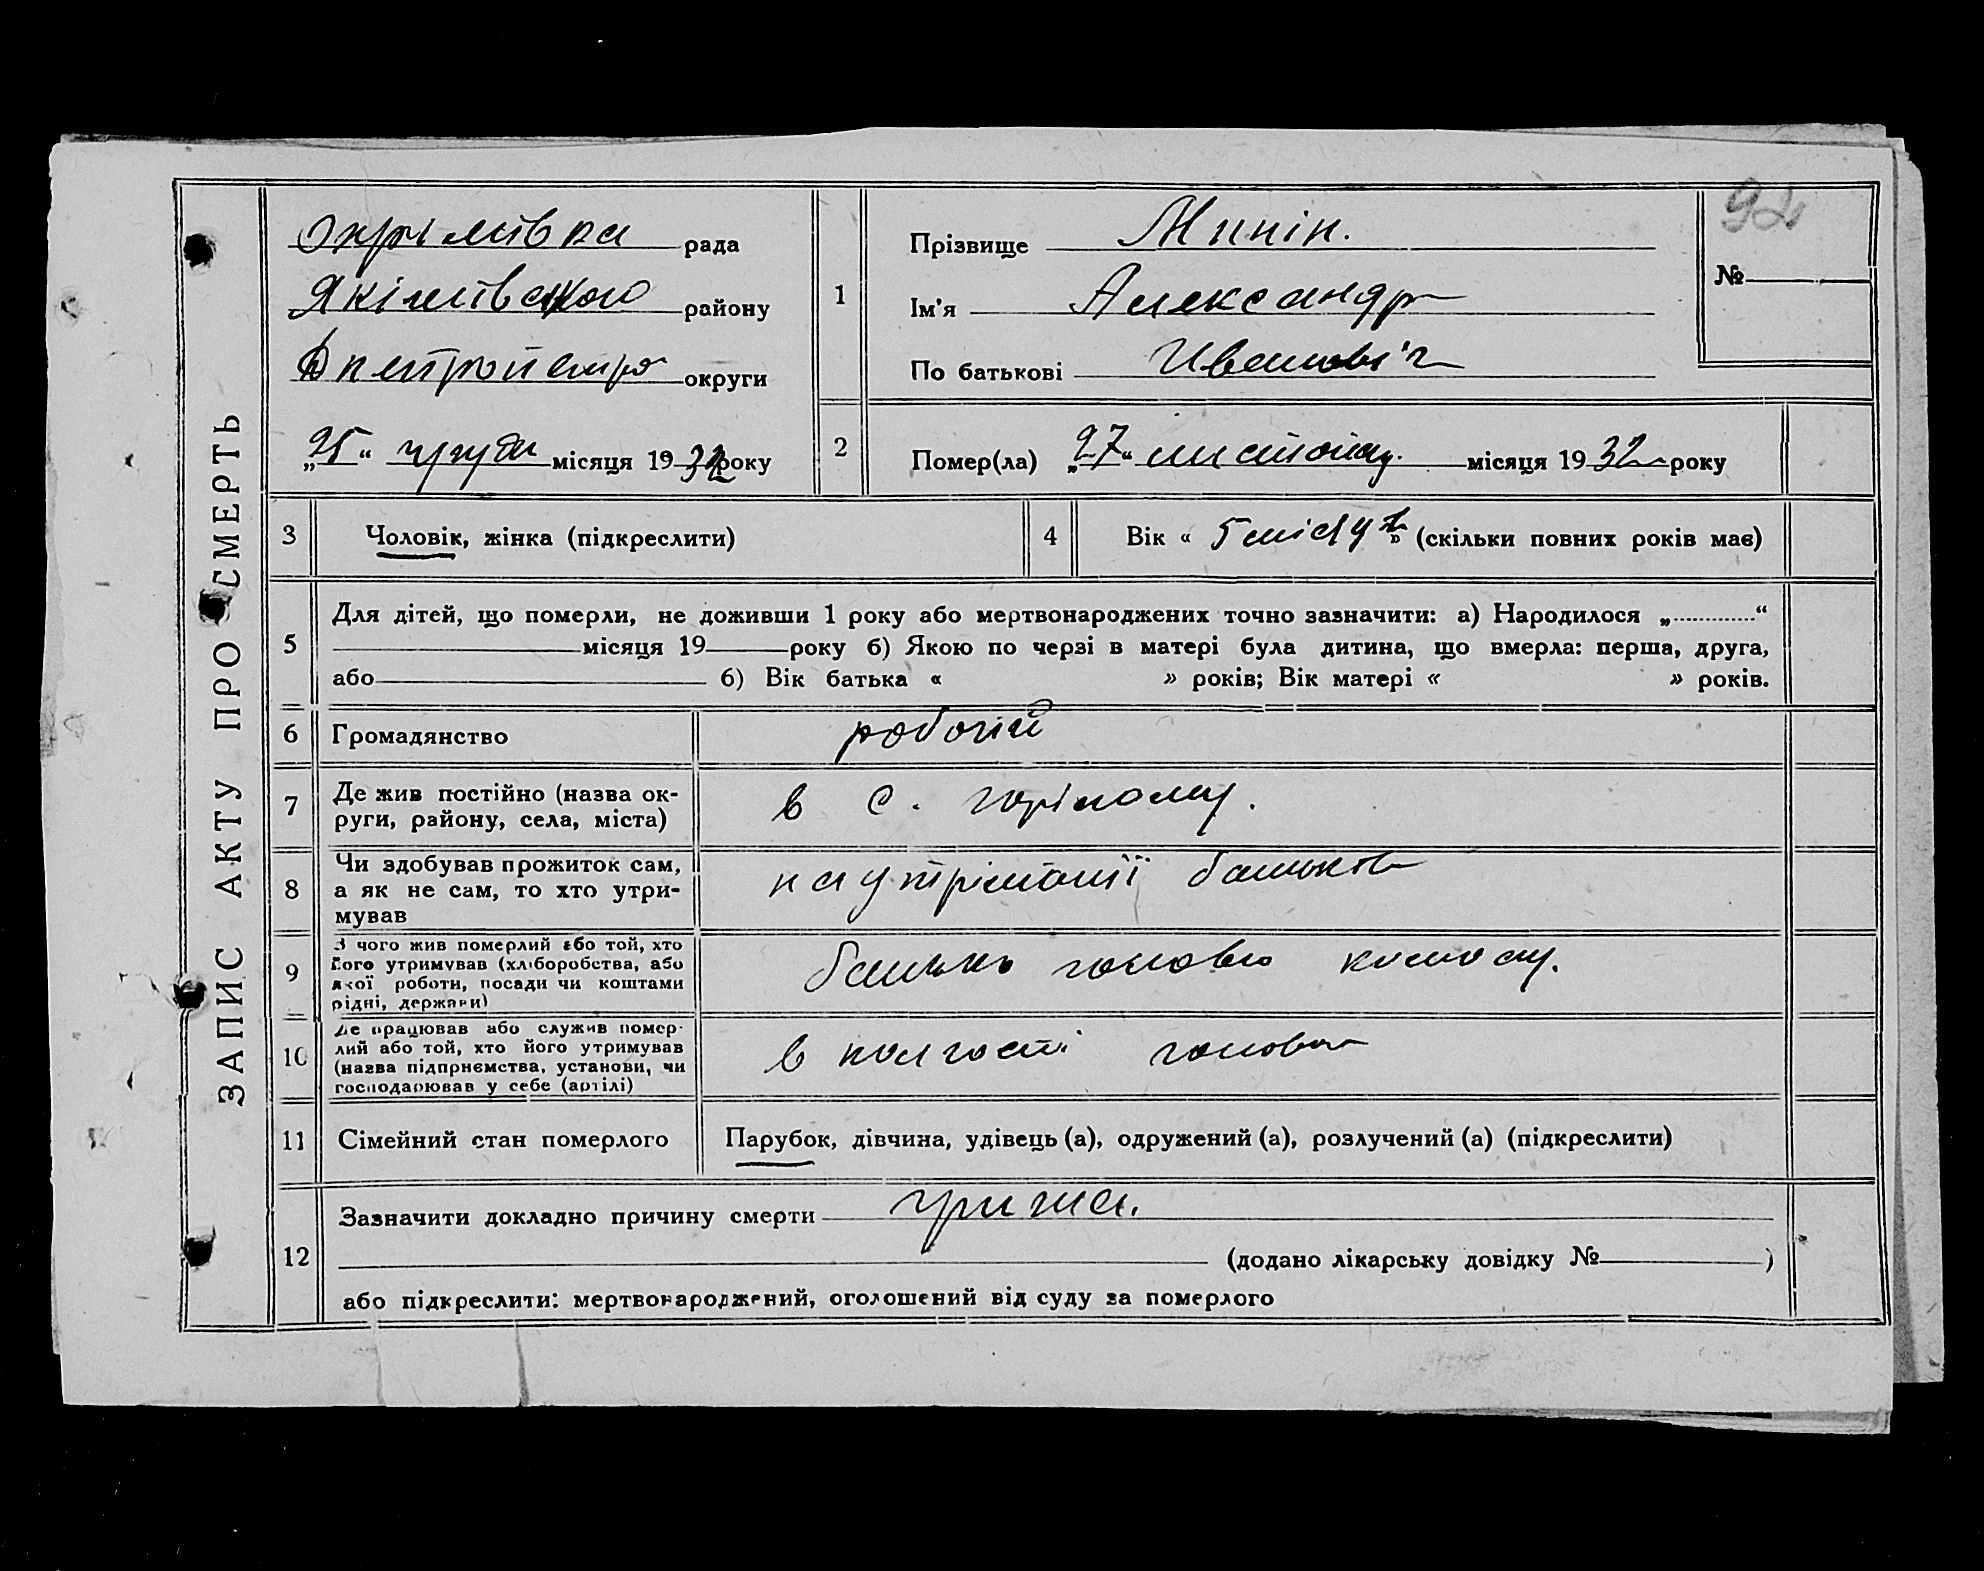 ЗАПИС АКТУ ПРО СМЕРТЬ
92
Охрімівка рада
Якімівського району
Днепропетро округи
„25“ грудн місяця 1932 року
1
Прізвище Минін.
Ім'я Александр
По батькові Иванович
№
2
Помер(ла) „27“ листопаду. місяця 1932 року
3 Чоловік, жінка (підкреслити)
4 Вік « 5 місяців » (скільки повних років має)
5
Для дітей, що померли, не доживши 1 року або мертвонароджених точно зазначити: а) Народилося „.............“
місяця 19 року б) Якою по черзі в матері була дитина, що вмерла: перша, друга,
або б) Вік батька « » років; Вік матері « » років.
6 Громадянство робочій
7
Де жив постійно (назва ок-
руги, району, села, міста)
в с.
8
Чи здобував прожиток сам,
а як не сам, то хто утри-
мував
на утріманії батьков
9
З чого жив померлий або той, хто
його утримував (хліборобства, або
якої роботи, посади чи коштами
рідні, держави)
батько голова
10
Де працював або служив помер-
лий або той, хто його утримував
(назва підприємства, установи, чи
господарював у себе (артілі)
в колгоспі голова
11 Сімейний стан померлого Парубок, дівчина, удівець (а), одружений (а), розлучений (а) (підкреслити)
12
Зазначити докладно причину смерти грижа.
(додано лікарську довідку № )
або підкреслити: мертвонароджений, оголошений від суду за померлого